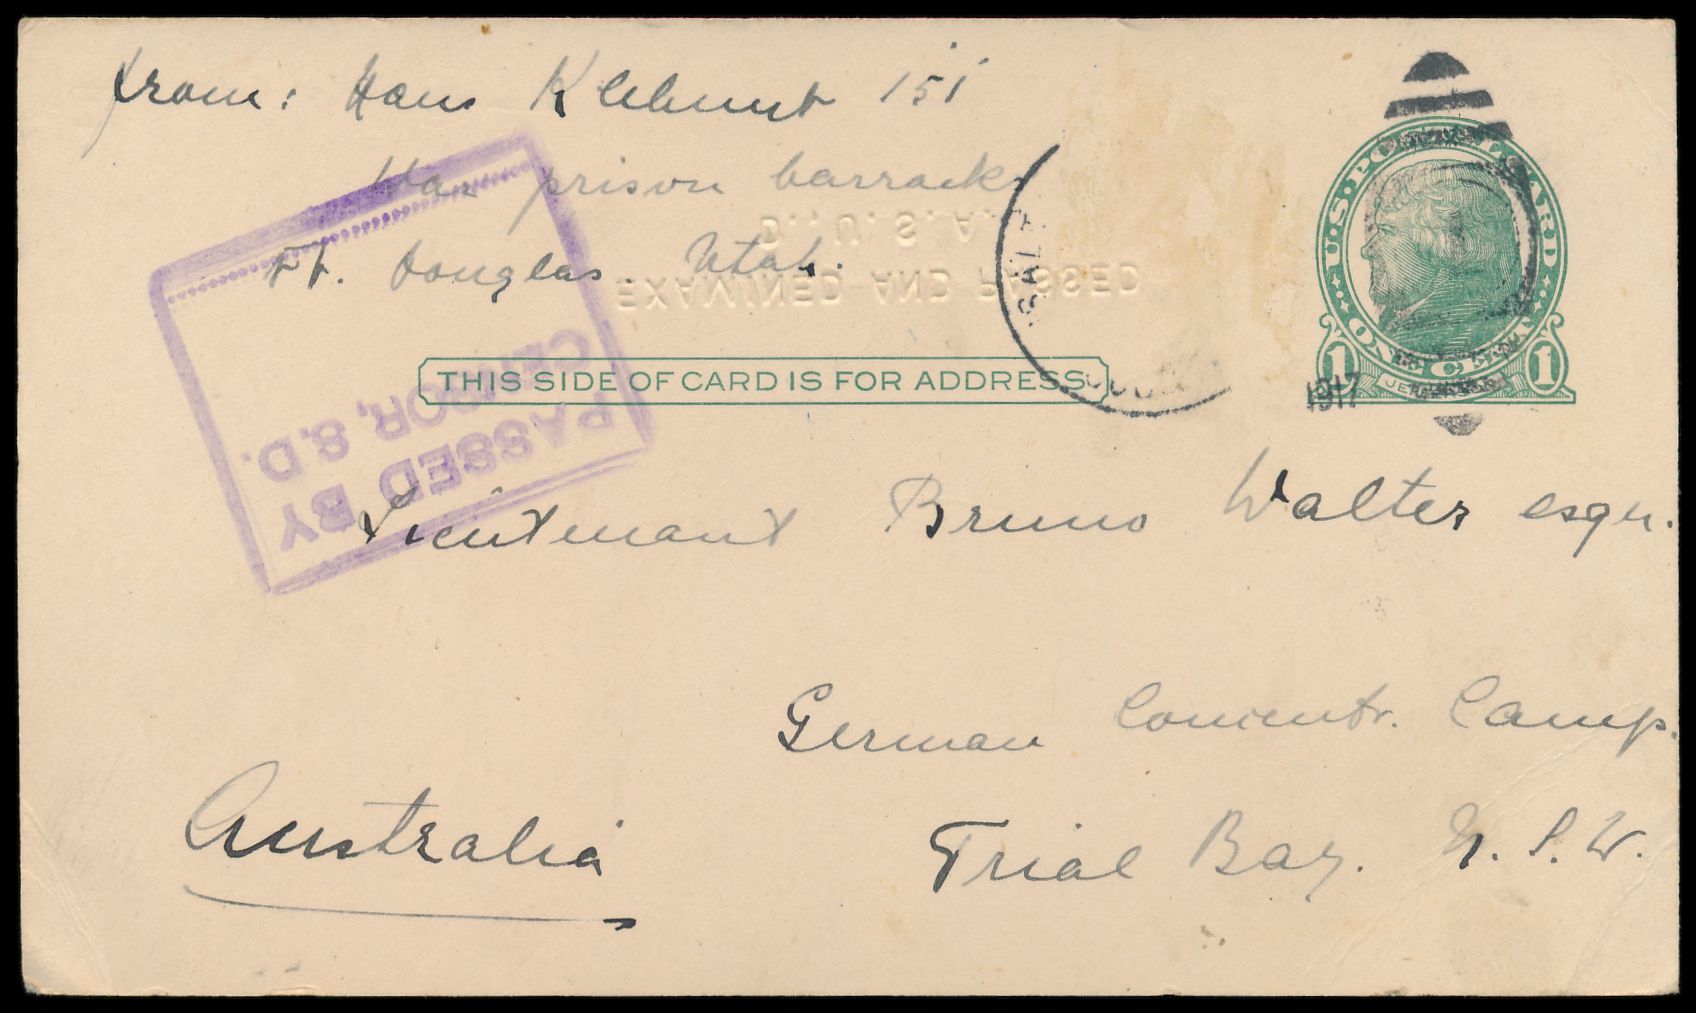 from: Hans 151
War prison barracks
Ft. Douglas Utah.
D., U. S. A.
EXAMINED AND PASSED
SALT
1917
U·S·POSTAL CARD
ONE CENT
1 JEFFERSON 1
THIS SIDE OF CARD IS FOR ADDRESS
PASSED BY
CENSOR, S.D.
Lieutenant Bruno Walter esqu.
German Concentr. Camp.
Trial Bay. N. S. W.
Australia